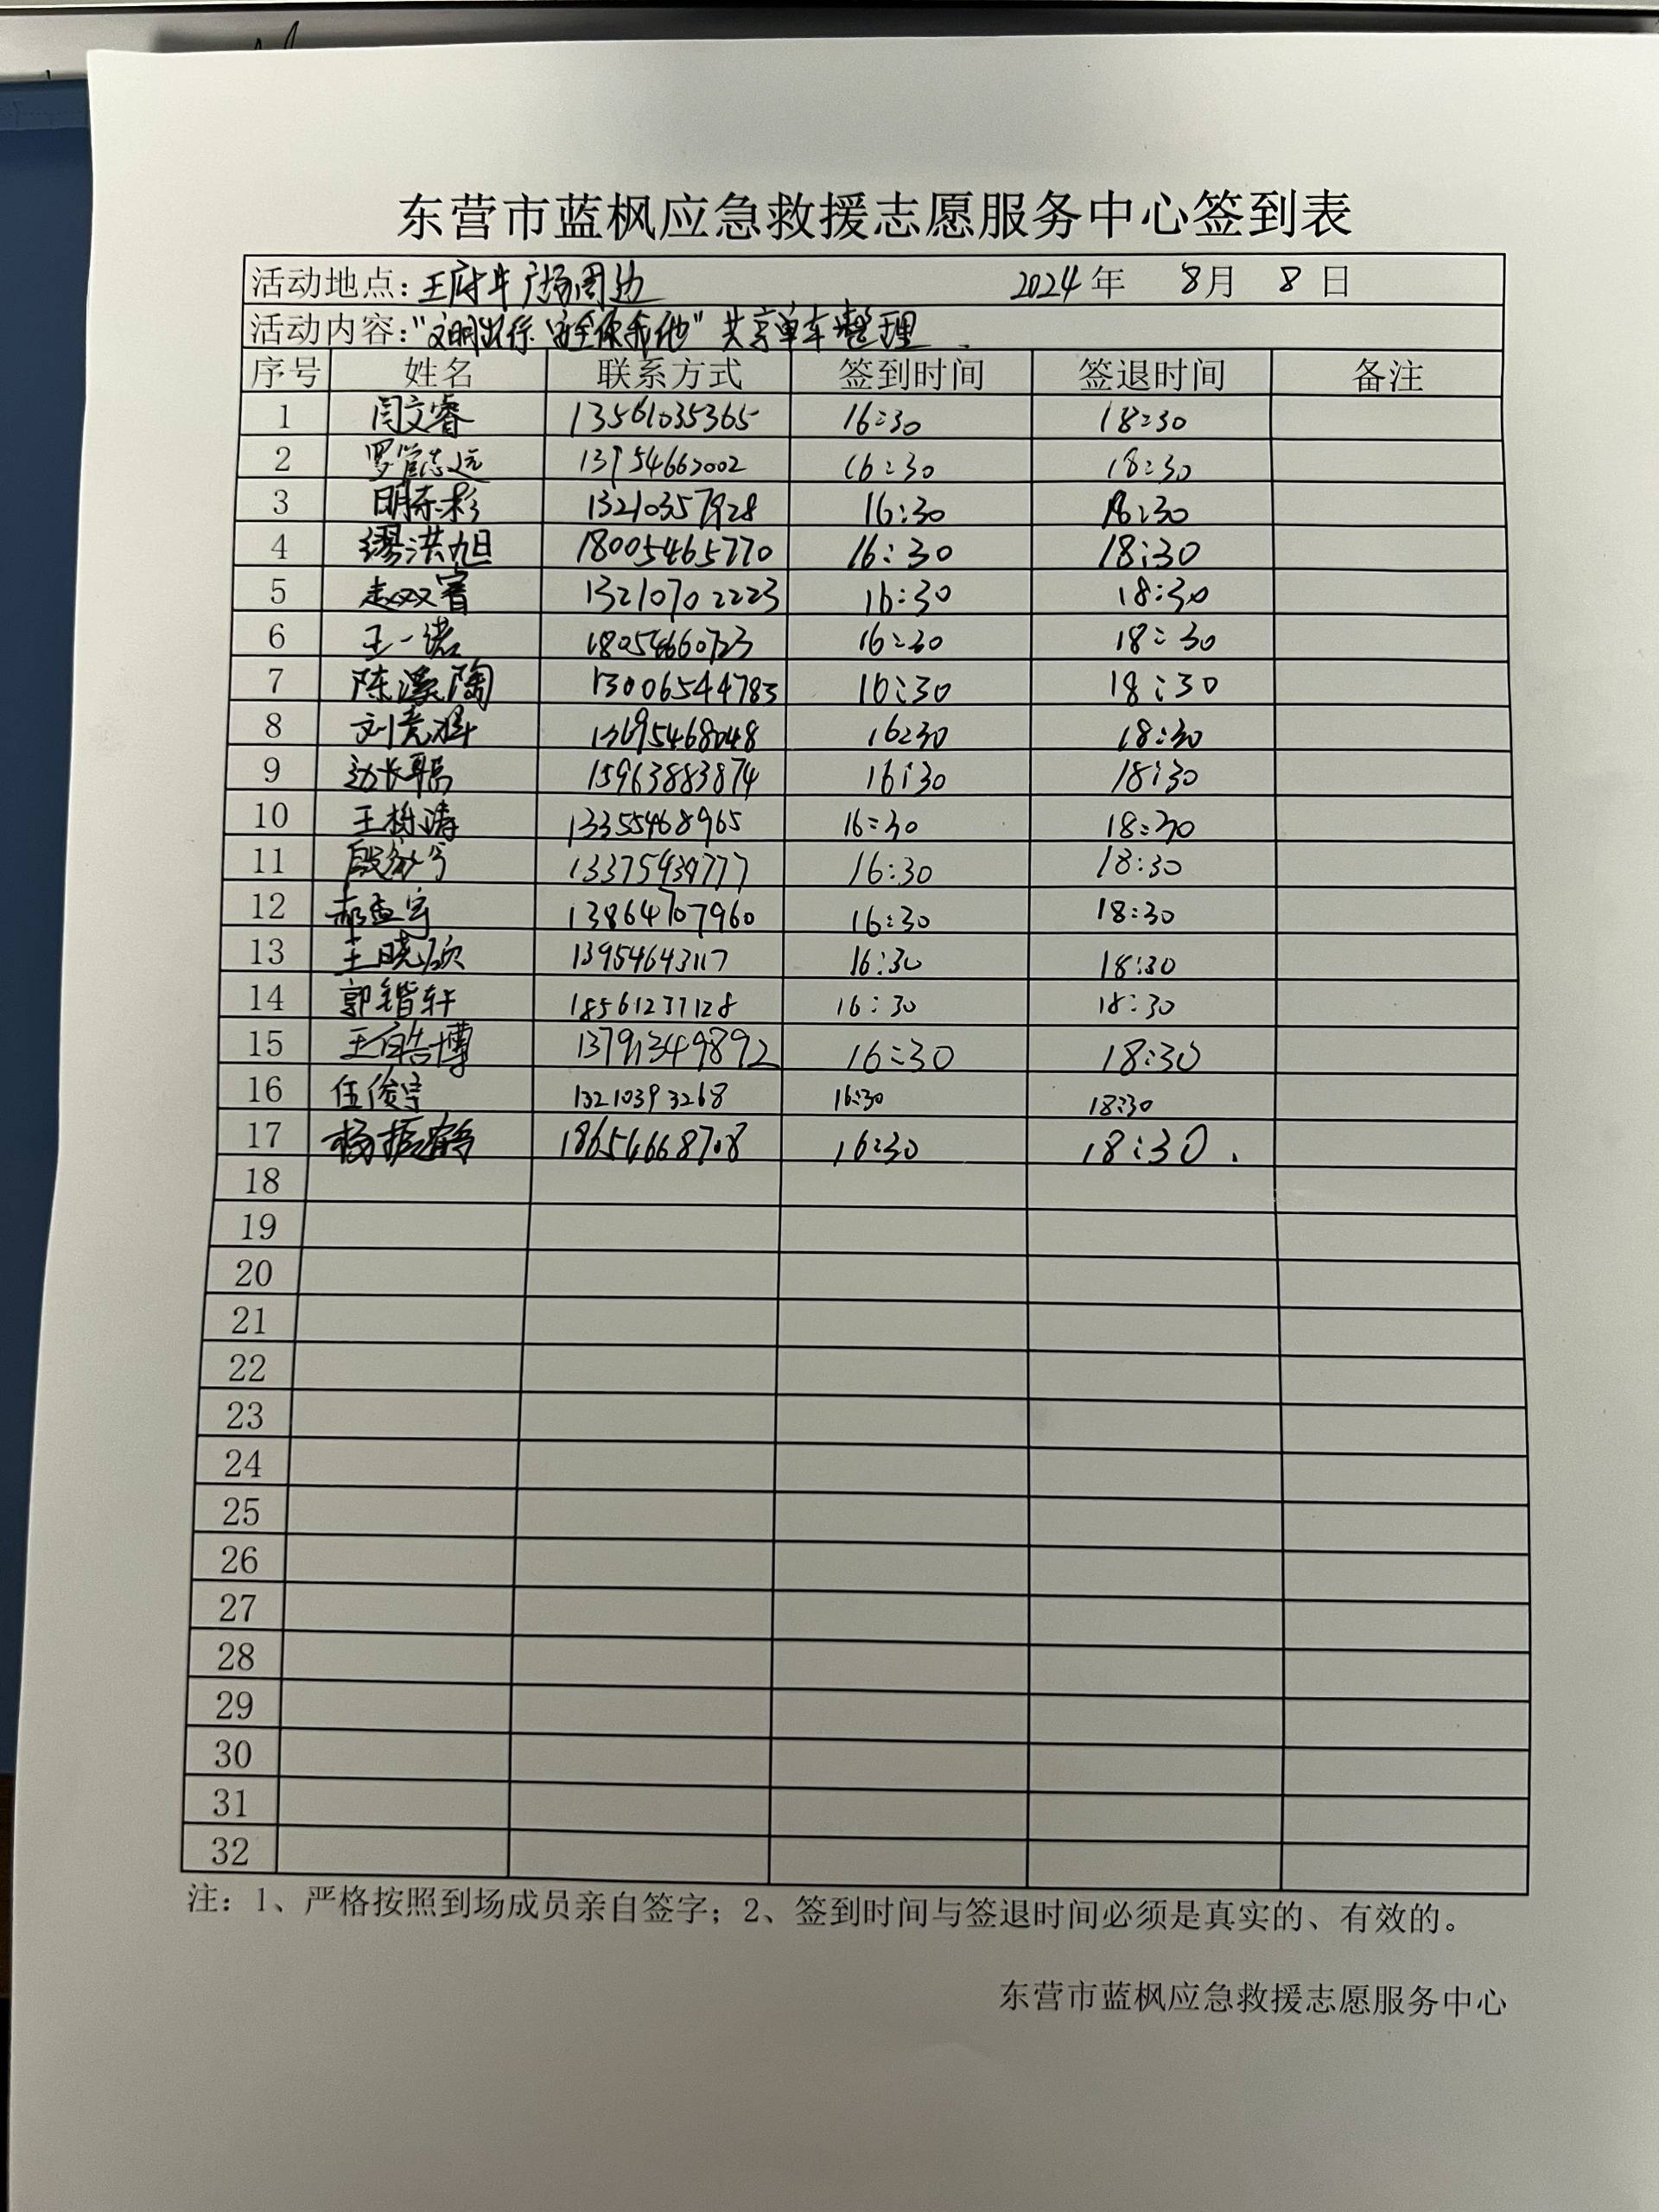 东营市蓝枫应急救援志愿服务中心签到表
活动地点：王府井广场周边 2024年 8月 8日
活动内容："文明出行 安全你我他" 共享单车整理
序号 姓名 联系方式 签到时间 签退时间 备注
1 闫文睿 13561035365 16:30 18:30
2 罗管志远 13954662002 16:30 18:30
3 明东杉 13210357928 16:30 18:30
4 缪洪旭 18005465770 16:30 18:30
5 赵双睿 13210702223 16:30 18:30
6 王一诺 18054660723 16:30 18:30
7 陈溪陶 13006544783 16:30 18:30
8 刘竞择 13695468048 16:30 18:30
9 15963883874 16:30 18:30
10 王栎涛 13355468965 16:30 18:30
11 16:30 18:30
12 郝孟宇 13864707960 16:30 18:30
13 王晓硕 13954643117 16:30 18:30
14 郭锴轩 18561237128 16:30 18:30
15 王皓博 13791349892 16:30 18:30
16 伍俊宇 13210393268 16:30 18:30
17 杨振鹤 18654668708 16:30 18:30.
18
19
20
21
22
23
24
25
26
27
28
29
30
31
32
注：1、严格按照到场成员亲自签字；2、签到时间与签退时间必须是真实的、有效的。
东营市蓝枫应急救援志愿服务中心